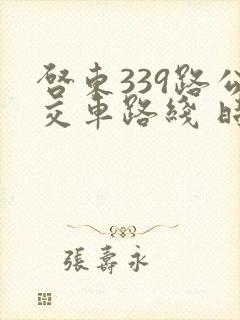 啓東339路公
交車路綫
張壽永